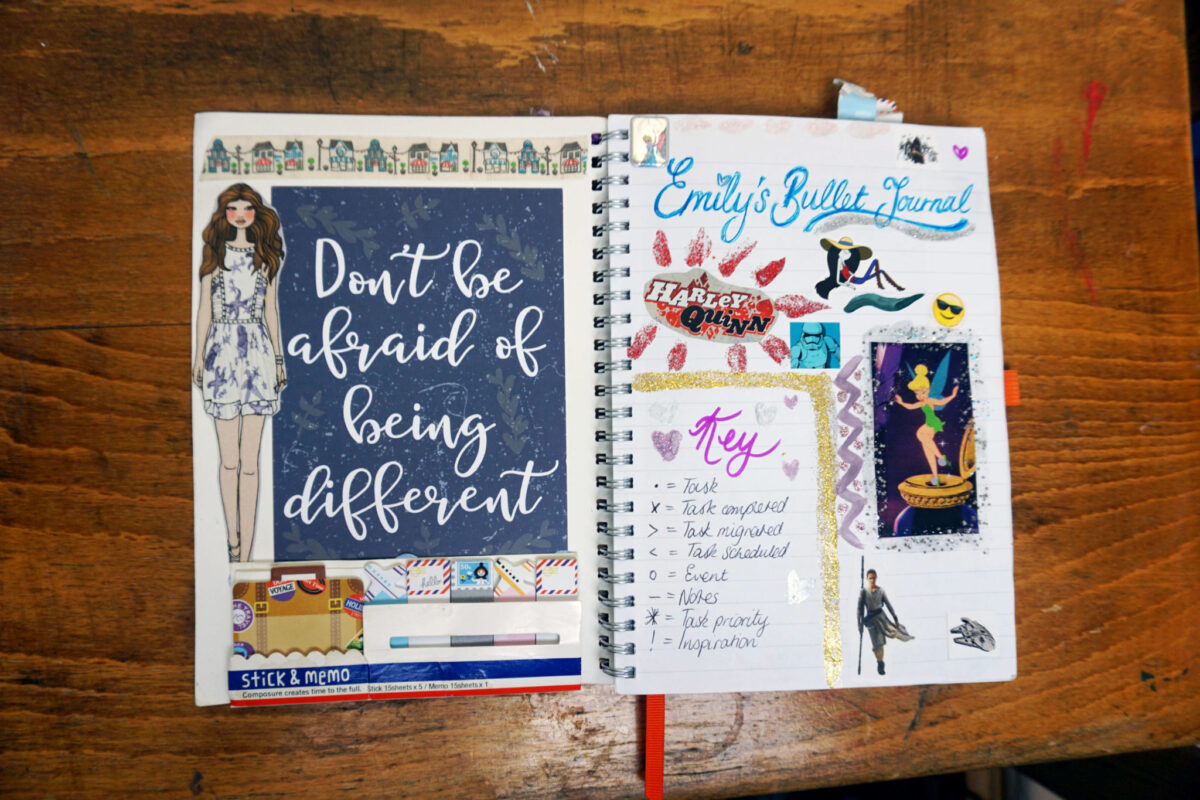 Don't be
afraid of
being
different
BON
VOYAGE
TRAVEL
HOLI
hello
50
Stick & memo
Composure creates time to the full. Stick 15sheets x 5 / Memo 15sheets x 1
Emily's Bullet Journal
HARLEY
QUINN
Key
• = Task
x = Task completed
> = Task migrated
< = Task scheduled
o = Event
— = Notes
* = Task priority
! = Inspiration